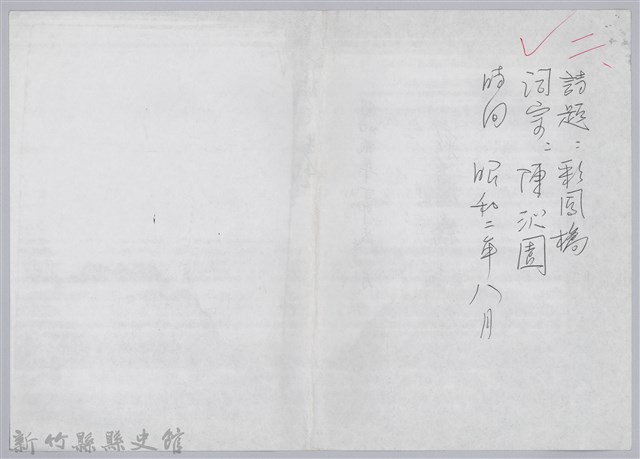 二、
詩題：彩鳳橋
詞宗：陳沁園
時間 昭和二年八月
新竹縣縣史館